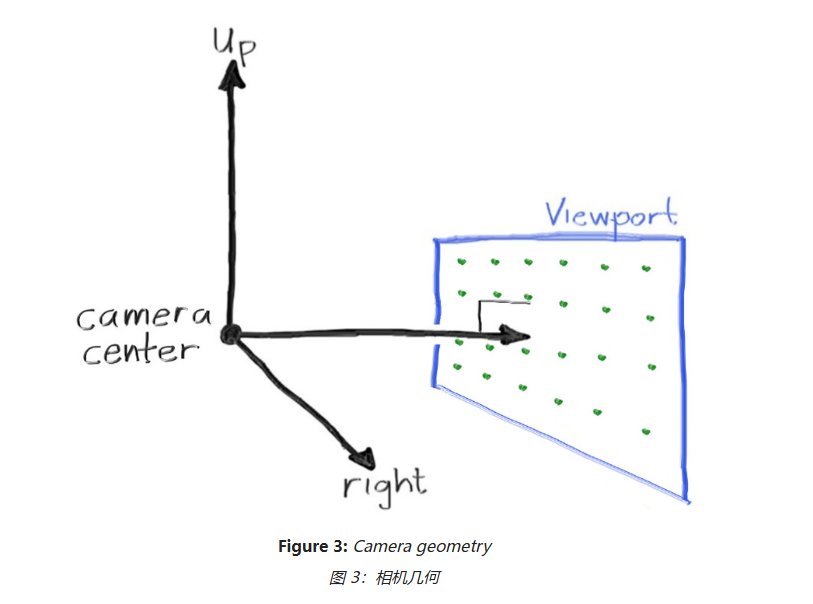 Up
Viewport
camera
center
right
Figure 3: Camera geometry
图 3：相机几何